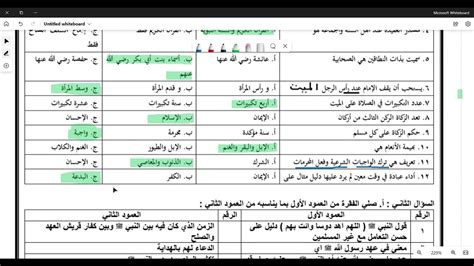 Microsoft Whiteboard
Untitled whiteboard
٤. مصادر العقيدة عند أهل السنة والجماعة القرآن الكريم ب. القرآن الكريم والسنة النبوية
فقط
٥. سميت بذات النطاقين هي الصحابية أ. عائشة رضي الله عنها ب. أسماء بنت أبي بكر رضي الله عنهم ج. حفصة رضي الله عنها
٦. يستحب أن يقف الإمام عند رأس الرجل الميت أ. و رأس المرأة ب. و قدم المرأة ج. وسط المرأة
٧. عدد التكبيرات في الصلاة على الميت أ. أربع تكبيرات ب. ستة تكبيرات ج. عشرة تكبيرات
٨. تعد الزكاة الركن الثالث من أركان أ. الإيمان ب. الإسلام ج. الإحسان
٩. حكم الزكاة على كل مسلم أ. سنة مؤكدة ب. محرمة ج. واجبة
١٠. بهيمة الأنعام هي أ. الإبل والبقر والغنم ب. الإبل والطيور ج. الغنم والكلاب
١١. تعريف هي ترك الواجبات الشرعية وفعل المحرمات أ. الشرك ب. الذنوب والمعاصي ج. الإحسان
١٢. أداء عبادة في وقت معين لم يرد عليها دليل مثال على أ. الإيمان ب. الكفر ج. البدعة
السؤال الثاني : أ. صلي الفقرة من العمود الأول بما يناسبه من العمود الثاني :
الرقم العمود الأول الرقم العمود الثاني
١ قول النبي ﷺ ( اللهم اهد دوسا وائت بهم ) دليل على حسن التعامل مع غير المسلمين الزمن الذي كان فيه بين النبي ﷺ وبين كفار قريش العهد والصلح
معنى في عهد رسول الله ﷺ أي الدعاء لهم بالهداية
220%